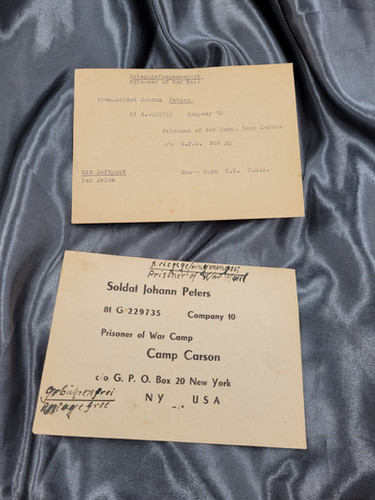 Kriegsgefangenenpost
Prisoner of War Mail
From.Soldat Johann Peters
81 G.-229735 Company 10
Prisoner of War Camp, Camp Carson
c/o G.P.O. Box 20
Mit Luftpost New-York N.Y. U.S.A.
Par Avion
Kriegsgefangenenpost
Prisoner of War Mail
Soldat Johann Peters
81 G 229735 Company 10
Prisoner of War Camp
Camp Carson
c/o G. P. O. Box 20 New York
gebührenfrei NY USA
Postage free